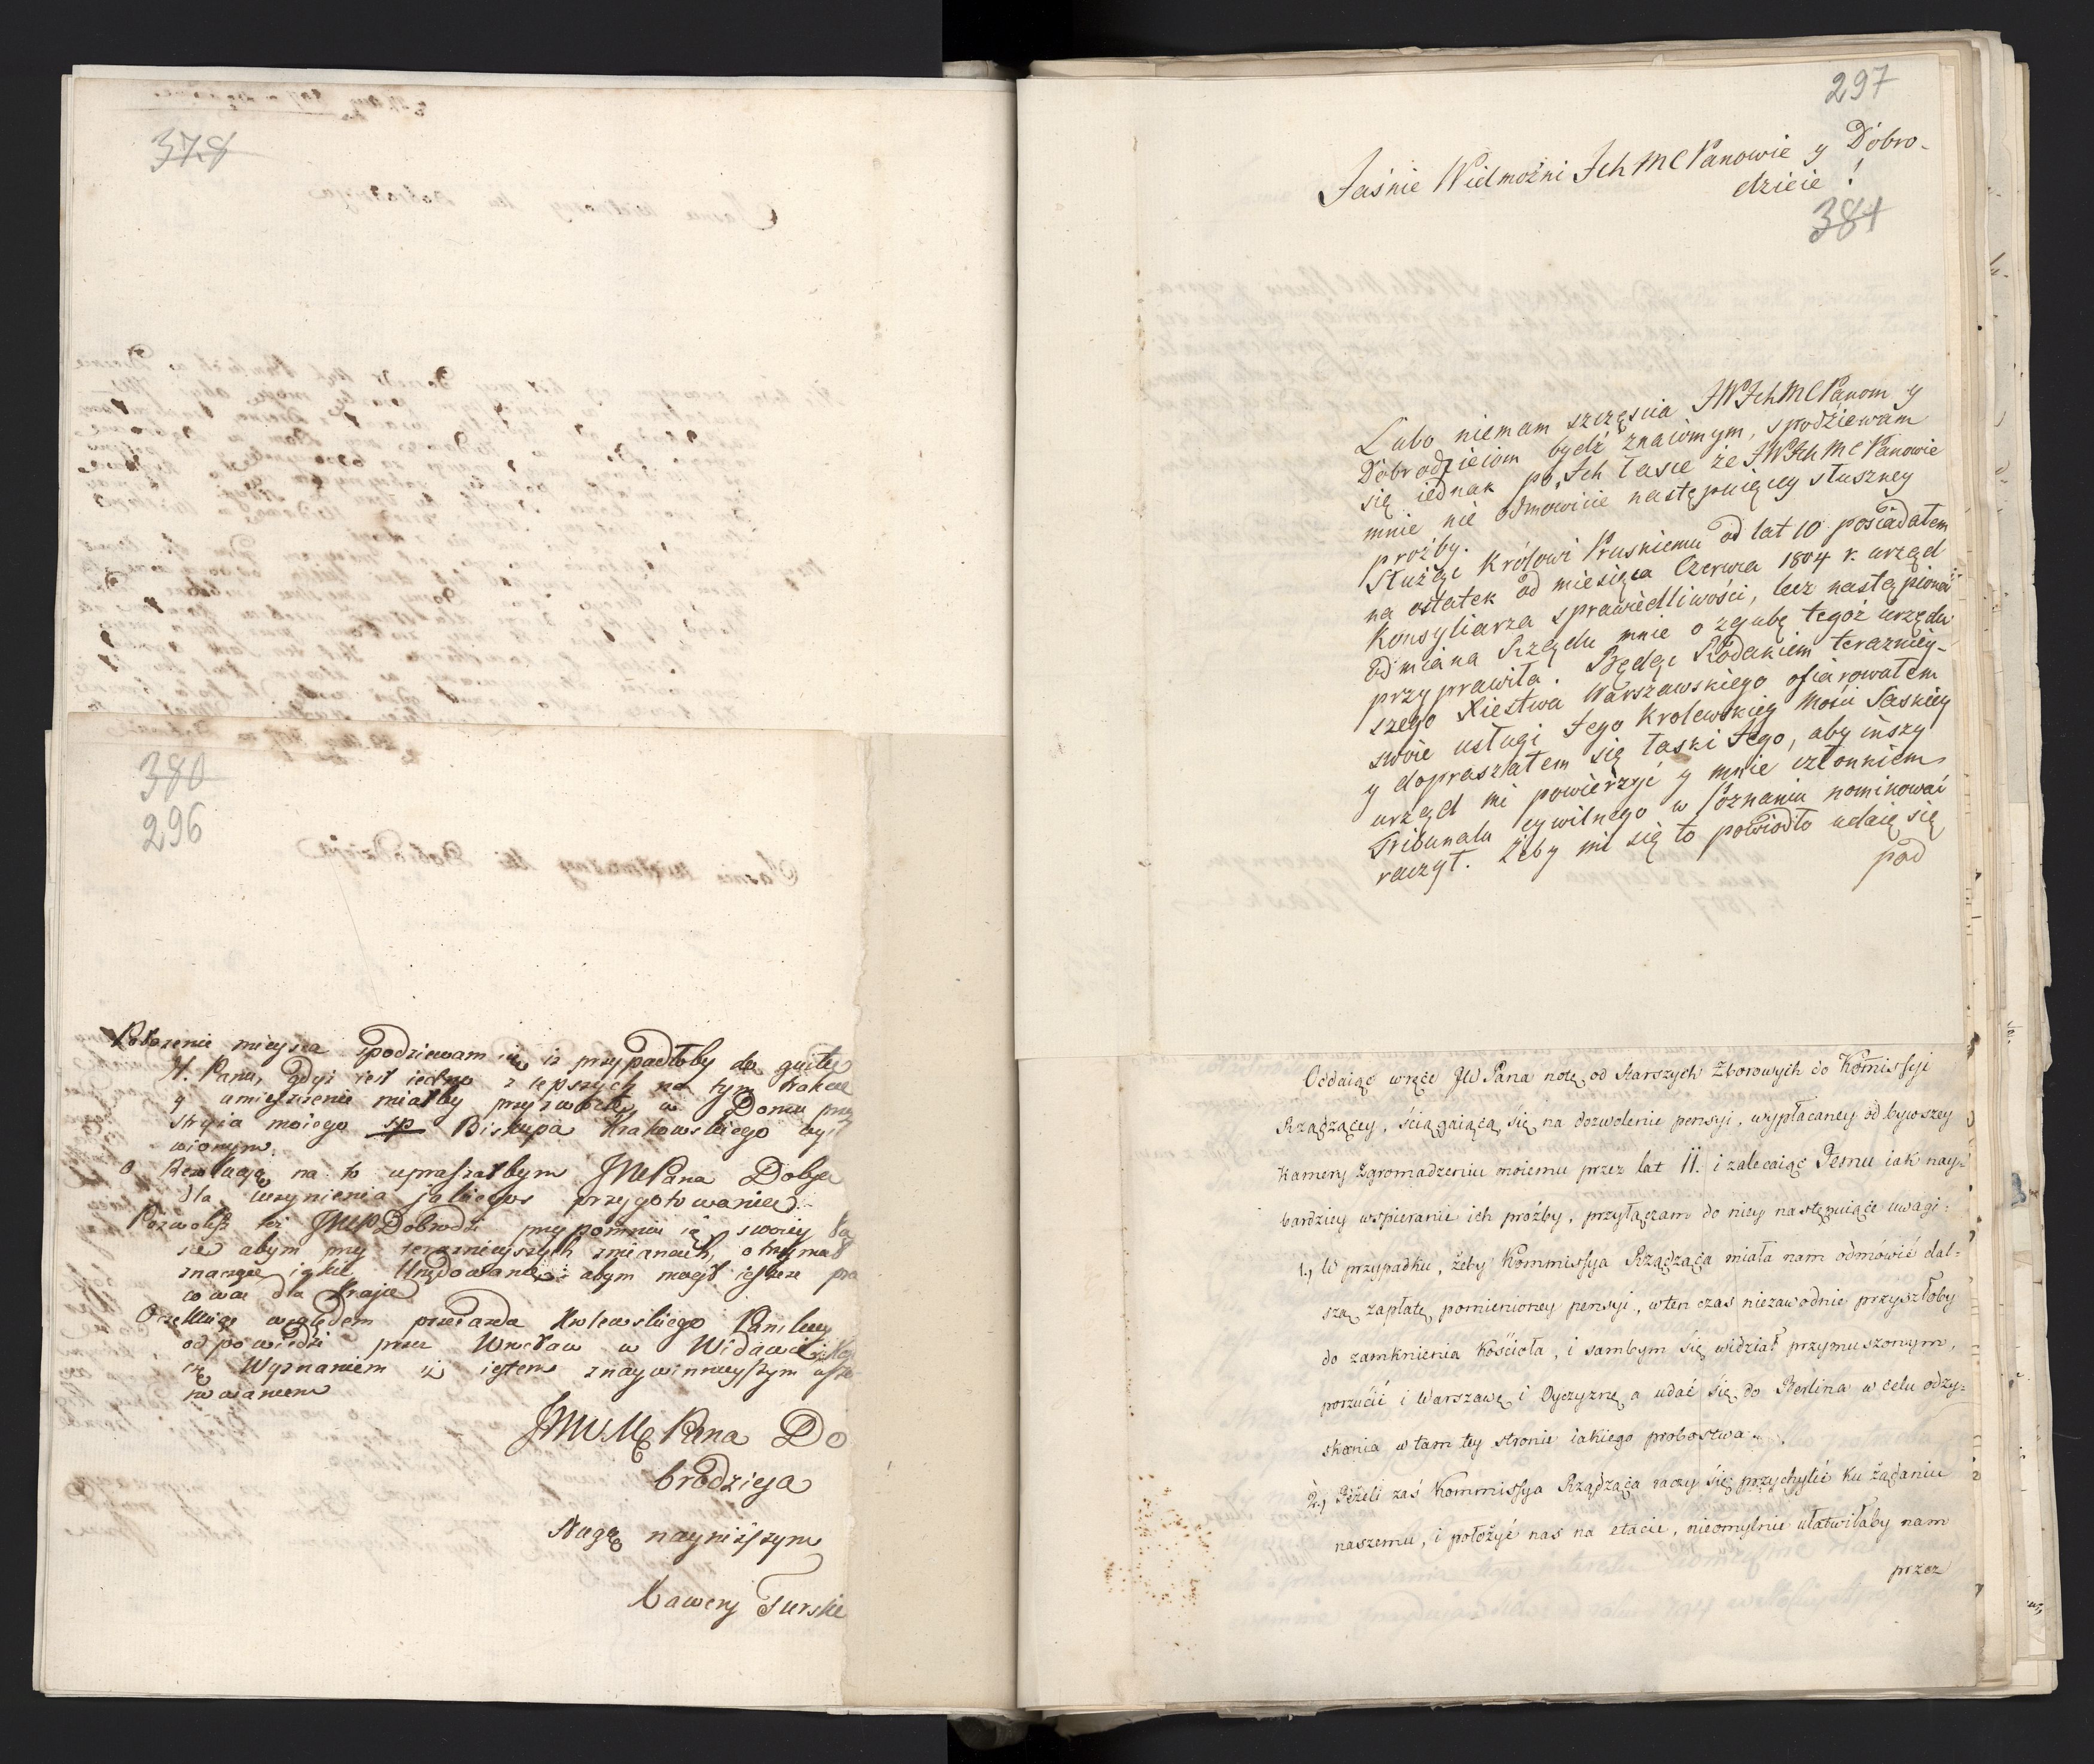 378
380
296
Położenie mieysca spodziewam się iż przypadłoby do gustu
W. Pana, gdyż iest iedno z lepszych na tym trakcie
y umieszczenie miałby przyzwoite w Domu przez
stryia moiego sp Biskupa Krakowskiego wy
wionym.
O Rezolucyą na to upraszałbym JWPana Dobge
dla uczynienia jakiegos przygotowania
Pozwolisz też JWPDobrodz: przypomnieć się swoiey Ła
sce abym przy teraznieyszych zmianach, otrzymał
znaczące iakie Urzędowanie: abym mogł ieszcze pra
cować dla Kraju
Oczekuiąc względem przeiazdu Krolewskiego Panskiey
odpowiedzi przez Wrocław w Widawie
z Wyznaniem iż iestem z naywinnieyszym usza-
nowaniem
JWWMç Pana Do
brodzieja
Sługą nayniższym
Xawery Turski
297
Jaśnie Wielmożni Ich MC Panowie y Dobro-
dzieie!
381
Lubo niemam szczęscia JWIchMCPanom y
Dobrodzieiom bydź znaiomym, spodziewam
się iednak po Ich łasce że JWIchMCPanowie
mnie nie odmowicie następuiącey słuszney
proźby.
Służąc Królowi Pruskiemu od lat 10 posiadałem
na ostatek od miesiąca Czerwca 1804 r. urząd
Konsyliarza sprawiedliwości, lecz nastąpiona
odmiana Rządu mnie o zgubę tegoż urzędu
przyprawiła. Będąc Rodakiem teraznięy-
szego Xięstwa Warszawskiego ofiarowałem
swoie usługi Jego Krolewskiey Mości Saskiey
y dopraszałem się łaski Jego, aby inszy
urząd mi powierzyć y mnie członkiem
Tribunalu cywilnego w Poznaniu nominować
raczył. Żeby mi się to powiodło udaię się
pod
Oddaiąc wręce JW Pana notę od Starszych Zborowych do Kommissyi
Rządzącey, ściągaiącą się na dozwolenie pensyi, wypłacaney od bywszey
Kamery Zgromadzeniu moiemu przez lat 11. i zalecaiąc Jemu iak nay-
bardziey wspieranie ich próżby, przyłączam do niey następuiące uwagi:
1., W przypadku, żeby Kommissya Rządząca miała nam odmówić dal-
szą zapłatę pomienioney pensyi, wten czas niezawodnie przyszłoby
do zamknienia Kościoła, i sambym się widział przymuszonym,
porzucić i Warszawę i Oyczyznę a udać się do Berlina w celu odzy-
skania w tam tey stronie iakiego probostwa.
2., Jeżeli zaś Kommissya Rządząca raczy się przychylić ku żądaniu
naszemu, i położyć nas na etacie, nieomylnie ułatwiłaby nam
przez